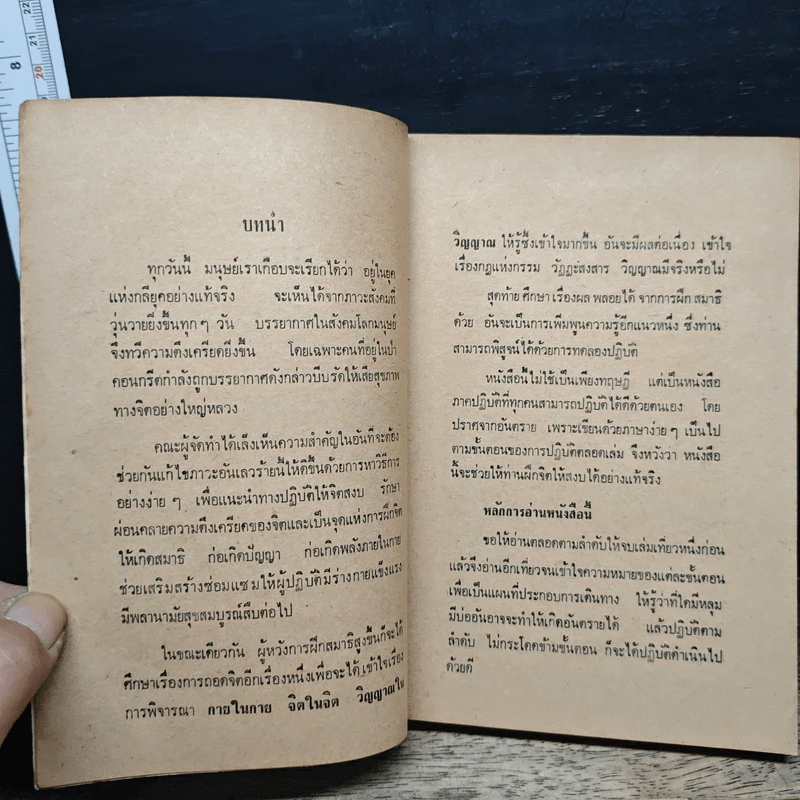 บทนำ
ทุกวันนี้ มนุษย์เราเกือบจะเรียกได้ว่า อยู่ในยุค
แห่งกลียุคอย่างแท้จริง จะเห็นได้จากภาวะสังคมที่
วุ่นวายยิ่งขึ้นทุกๆ วัน บรรยากาศในสังคมโลกมนุษย์
จึงทวีความตึงเครียดยิ่งขึ้น โดยเฉพาะคนที่อยู่ในป่า
คอนกรีตกำลังถูกบรรยากาศดังกล่าวบีบรัดให้เสียสุขภาพ
ทางจิตอย่างใหญ่หลวง
คณะผู้จัดทำได้เล็งเห็นความสำคัญในอันที่จะต้อง
ช่วยกันแก้ไขภาวะอันเลวร้ายนี้ให้ดีขึ้นด้วยการหาวิธีการ
อย่างง่ายๆ เพื่อแนะนำทางปฏิบัติให้จิตสงบ รักษา
ผ่อนคลายความตึงเครียดของจิตและเป็นจุดแห่งการฝึกจิต
ให้เกิดสมาธิ ก่อเกิดปัญญา ก่อเกิดพลังภายในกาย
ช่วยเสริมสร้างซ่อมแซมให้ผู้ปฏิบัติมีร่างกายแข็งแรง
มีพลานามัยสุขสมบูรณ์สืบต่อไป
ในขณะเดียวกัน ผู้หวังการฝึกสมาธิสูงขึ้นก็จะได้
ศึกษาเรื่องการถอดจิตอีกเรื่องหนึ่งเพื่อจะได้ เข้าใจเรื่อง
การพิจารณา กายในกาย จิตในจิต วิญญาณใน
วิญญาณ ให้รู้ซึ้งเข้าใจมากขึ้น อันจะมีผลต่อเนื่อง เข้าใจ
เรื่องกฎแห่งกรรม วัฏฏะสงสาร วิญญาณมีจริงหรือไม่
สุดท้าย ศึกษา เรื่องผล พลอยได้ จากการฝึก สมาธิ
ด้วย อันจะเป็นการเพิ่มพูนความรู้อีกแนวหนึ่ง ซึ่งท่าน
สามารถพิสูจน์ได้ด้วยการทดลองปฏิบัติ
หนังสือนี้ไม่ใช้เป็นเพียงทฤษฎี แต่เป็นหนังสือ
ภาคปฏิบัติที่ทุกคนสามารถปฏิบัติได้ดีด้วยตนเอง โดย
ปราศจากอันตราย เพราะเขียนด้วยภาษาง่ายๆ เป็นไป
ตามขั้นตอนของการปฏิบัติตลอดเล่ม จึงหวังว่า หนังสือ
นี้จะช่วยให้ท่านฝึกจิตให้สงบได้อย่างแท้จริง
หลักการอ่านหนังสือนี้
ขอให้อ่านตลอดตามลำดับให้จบเล่มเที่ยวหนึ่งก่อน
แล้วจึงอ่านอีกเที่ยวจนเข้าใจความหมายของแต่ละขั้นตอน
เพื่อเป็นแผนที่ประกอบการเดินทาง ให้รู้ว่าที่ใดมีหลุม
มีบ่ออันอาจจะทำให้เกิดอันตรายได้ แล้วปฏิบัติตาม
ลำดับ ไม่กระโดดข้ามขั้นตอน ก็จะได้ปฏิบัติดำเนินไป
ด้วยดี
8
20
21
22